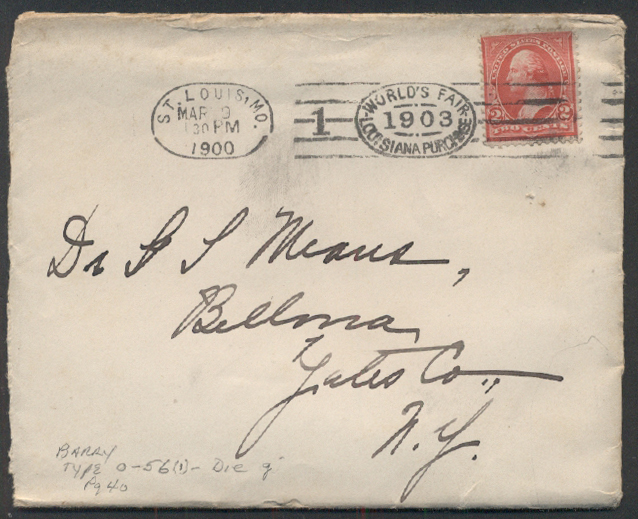 ST. LOUIS, MO.
MAR 9
130 PM
1900
1
WORLD'S FAIR
1903
LOUISIANA PURCHASE
UNITED STATES POSTAGE
2 2
TWO CENTS
Dr G S Means,
Bellona,
Yates Co.,
N.Y.
BARRY
TYPE O-56(1)- Die g
Pg 40